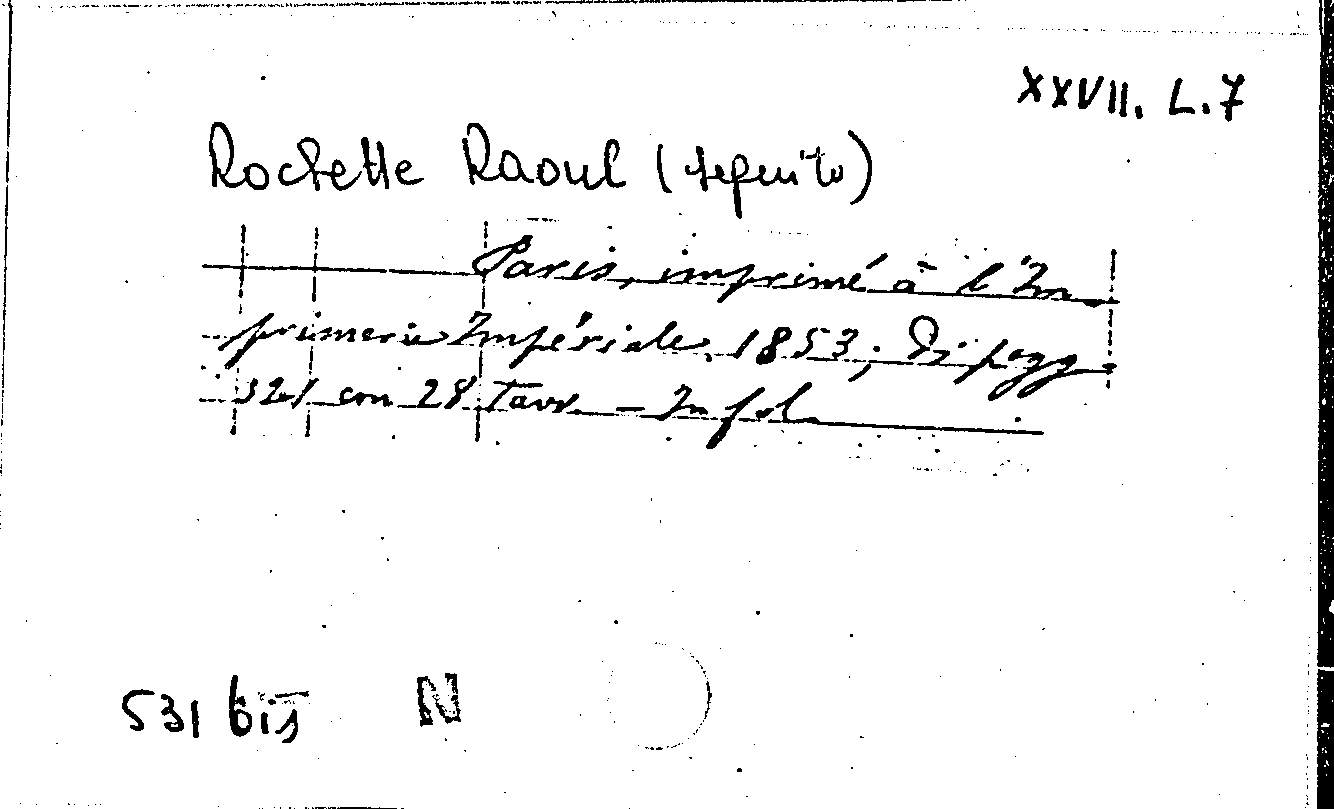 XXVII. L.7
Rochette Raoul (seguito)
Paris, imprimé à l'Im
primerie Impériale, 1853; Di pagg.
321 con 28 Tavv. - In fol.
531 bis N